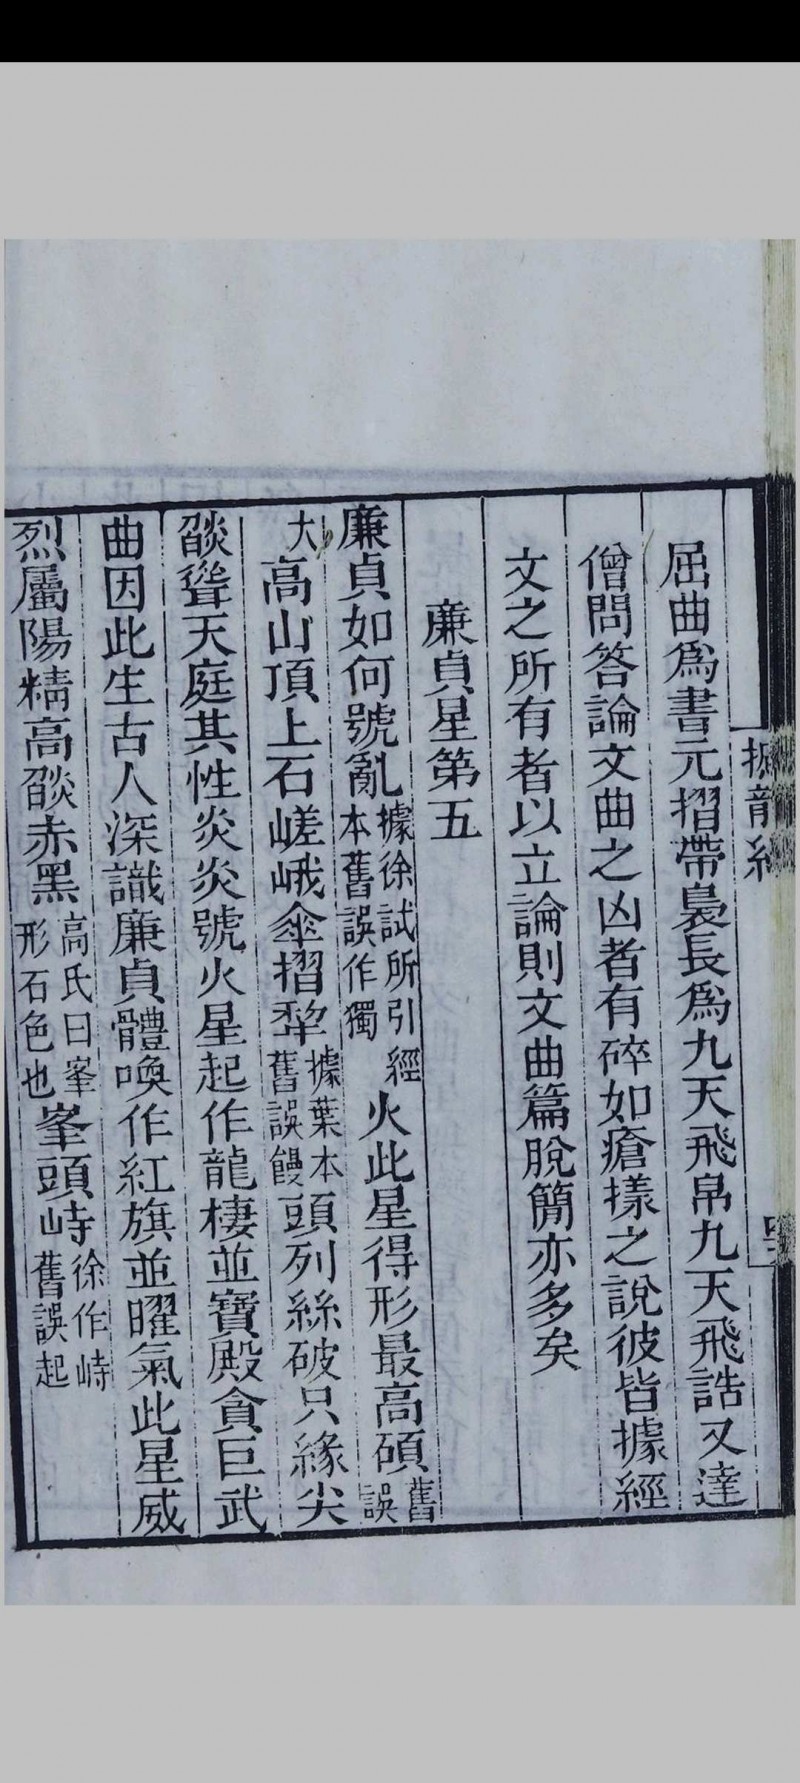 屈曲爲書元摺帶裊長爲九天飛帛九天飛誥又達
僧問答論文曲之凶者有碎如瘡㨾之說彼皆據經
文之所有者以立論則文曲篇脫簡亦多矣
廉貞星第五
廉貞如何號亂據徐試所引經本舊誤作獨火此星得形最高碩舊誤
大高山頂上石嵯峨傘摺犂據葉本舊誤饅頭列絲破只緣尖
燄聳天庭其性炎炎號火星起作龍棲並寶殿貪巨武
曲因此生古人深識廉貞體喚作紅旗並曜氣此星威
烈屬陽精高燄赤黑高氏曰峯形石色也峯頭峙徐作峙舊誤起
撼龍經